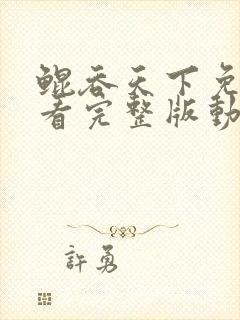 鲲吞天下免
看完整版動
許勇